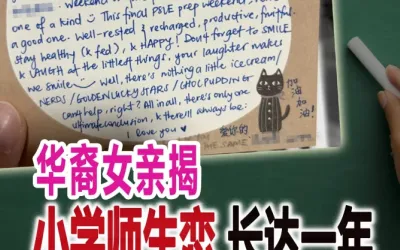 one of a kind ☺ This final PSLE prep weekend,
a good one. Well-rested & recharged, productive, fruitful
stay healthy (& fed), & HAPPY! Don't forget to SMILE
& LAUGH at the littlest things, your laughter makes
we smile. Well, there's nothing a little icecream/
NERDS/GOLDEN LUCKY STARS/CHOC PUDDING
can't help, right? All in all, there's only one
ultimate conclusion, & there'll always be:
I love you ♥
加油加油!
爱你的
华裔女亲揭
小学师生恋 长达一年